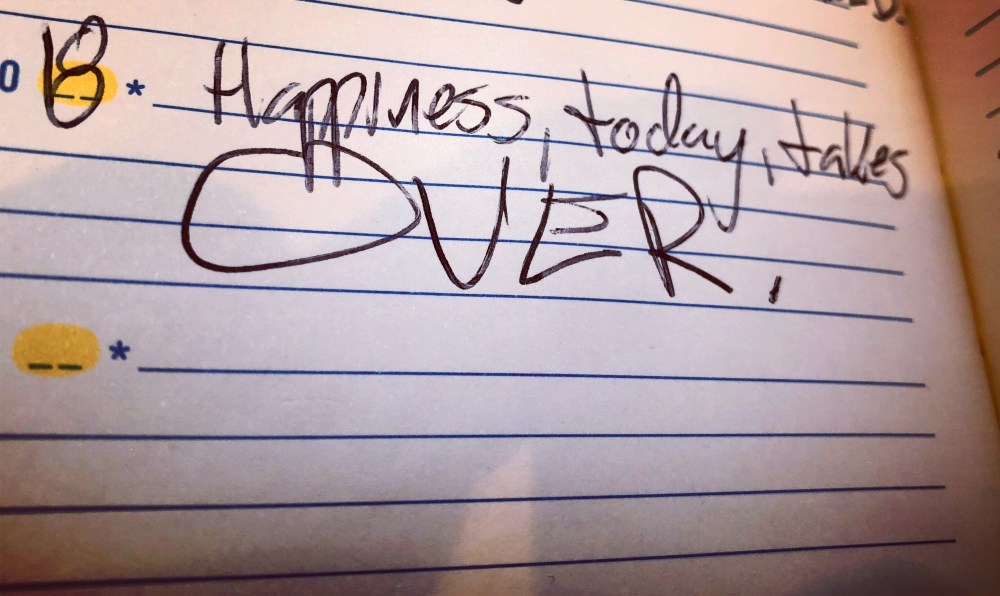 D.
0 18 * Happiness, today, takes
OVER.
__ *